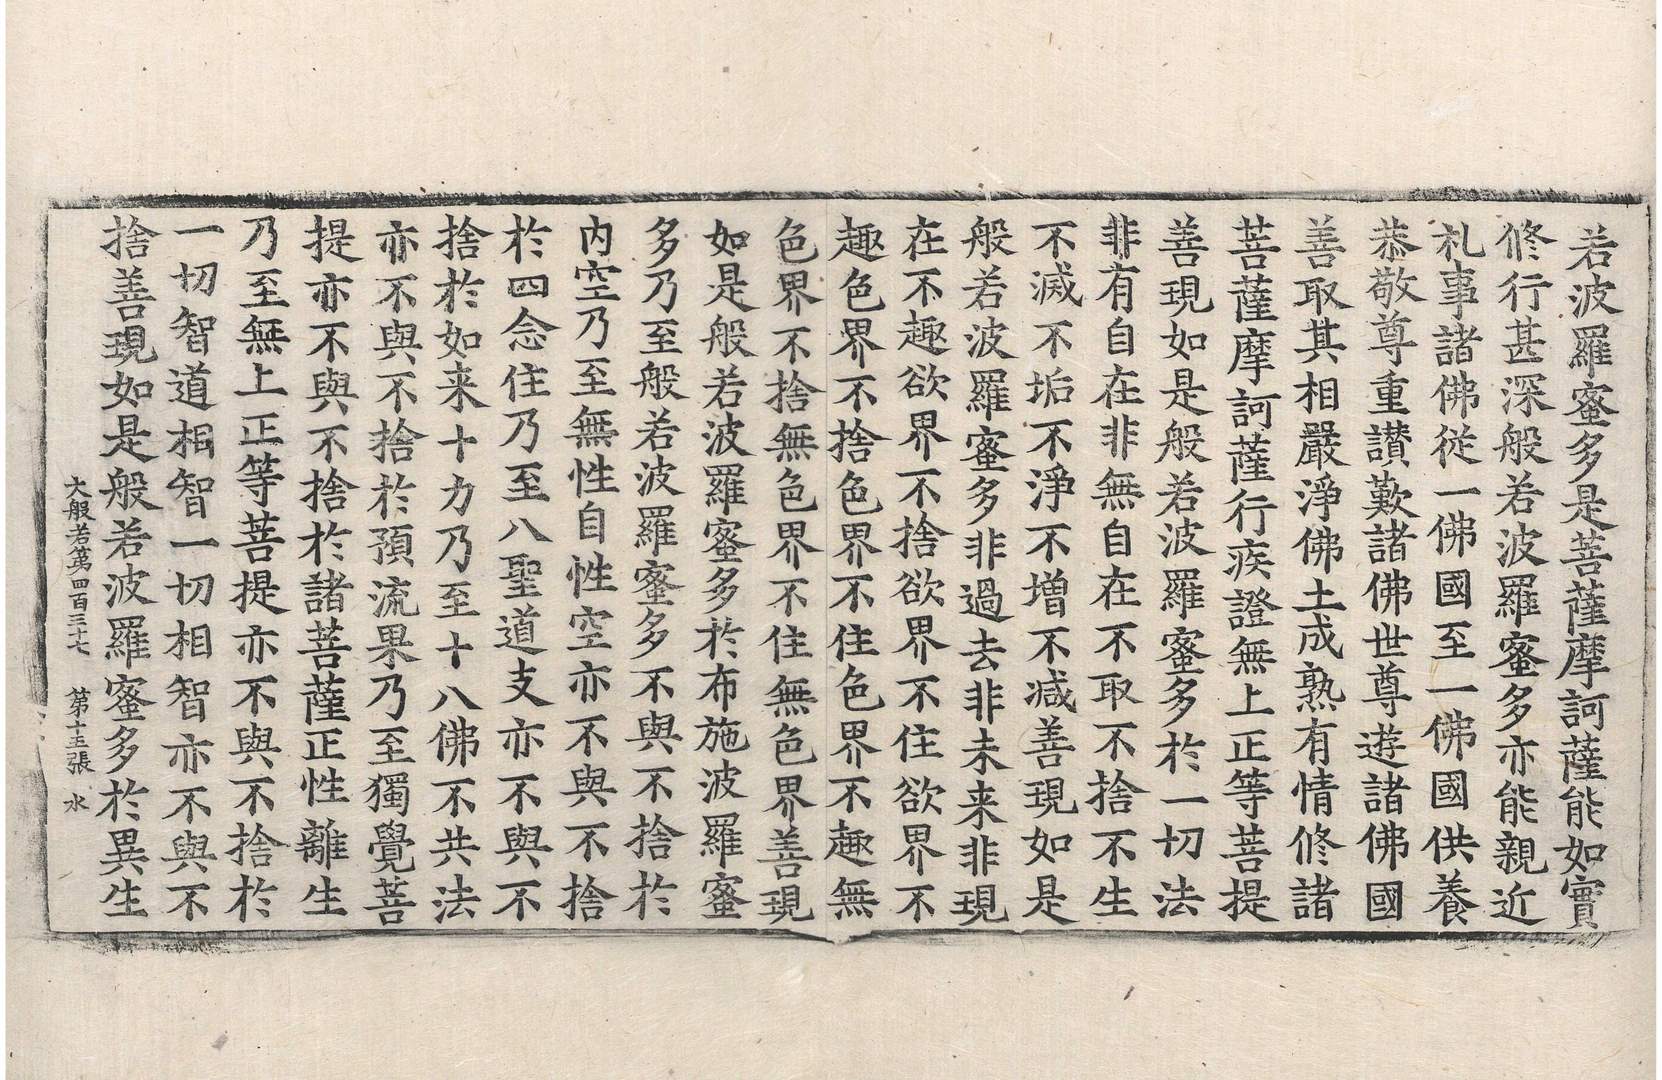 若波羅蜜多是菩薩摩訶薩能如實
修行甚深般若波羅蜜多亦能親近
礼事諸佛從一佛國至一佛國供養
恭敬尊重讃歎諸佛世尊遊諸佛國
善取其相嚴淨佛土成熟有情修諸
菩薩摩訶薩行疾證無上正等菩提
善現如是般若波羅蜜多於一切法
非有自在非無自在不取不捨不生
不滅不垢不淨不增不减善現如是
般若波羅蜜多非過去非未来非現
在不趣欲界不捨欲界不住欲界不
趣色界不捨色界不住色界不趣無
色界不捨無色界不住無色界善現
如是般若波羅蜜多於布施波羅蜜
多乃至般若波羅蜜多不與不捨於
内空乃至無性自性空亦不與不捨
於四念住乃至八聖道支亦不與不
捨於如来十力乃至十八佛不共法
亦不與不捨於預流果乃至獨覺菩
提亦不與不捨於諸菩薩正性離生
乃至無上正等菩提亦不與不捨於
一切智道相智一切相智亦不與不
捨善現如是般若波羅蜜多於異生
大般若第四百三十七 第十五張 水